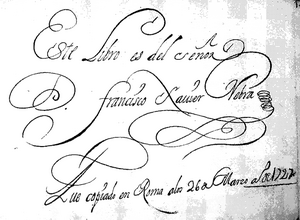 Este Libro es del señor
D. Francisco Xavier Nebra
Fue copiado en Roma a los 26 de Marzo